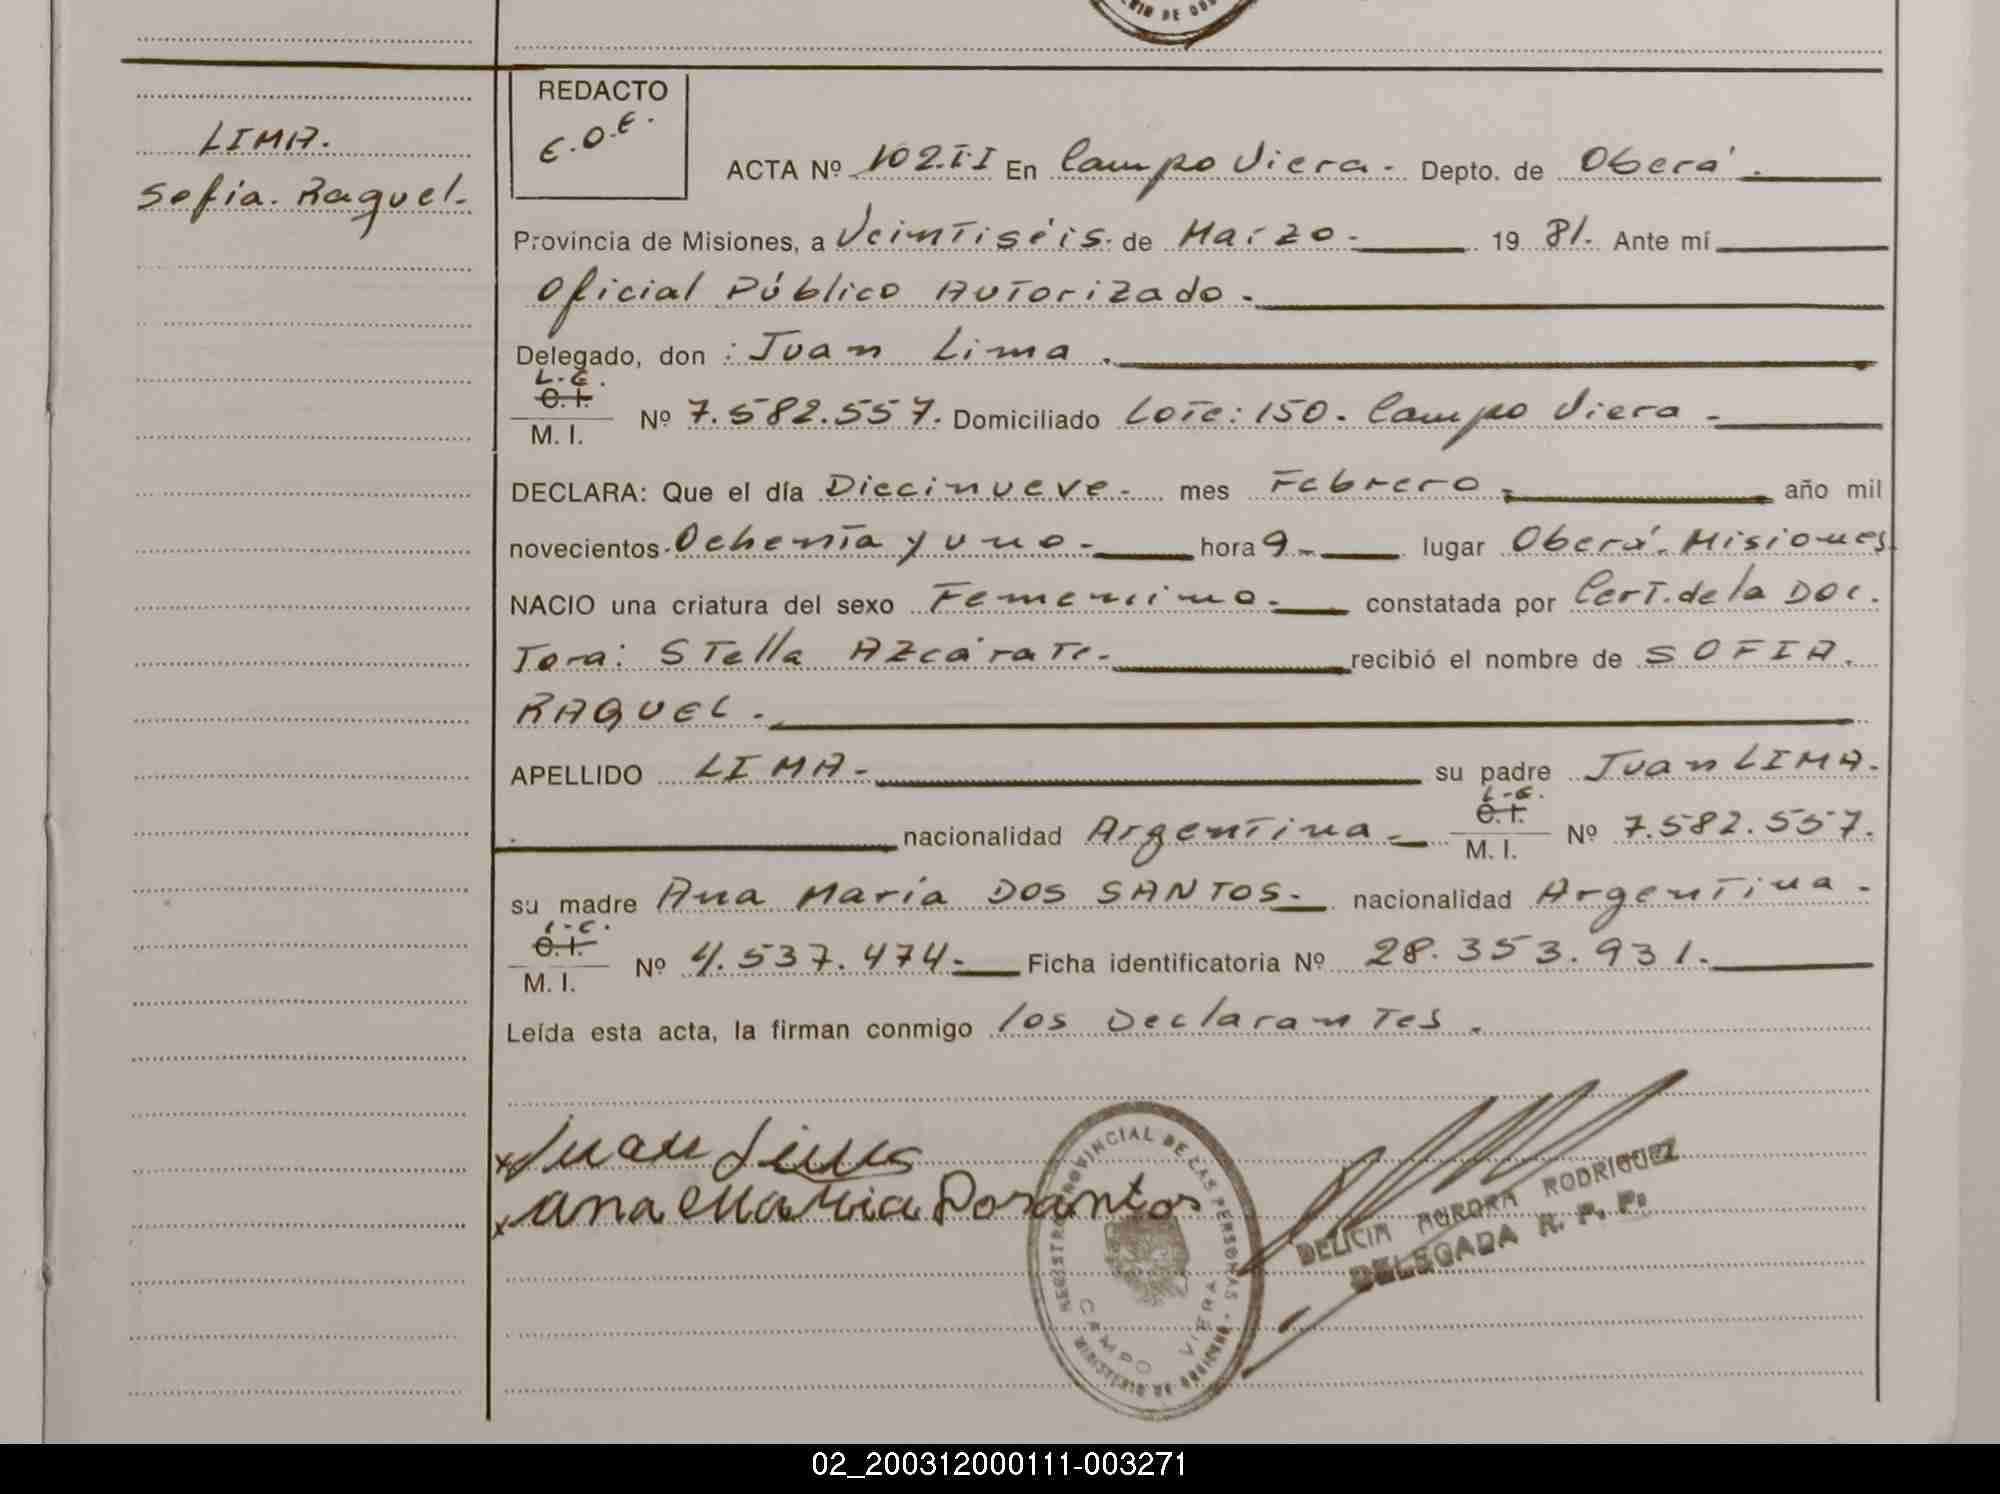 REDACTO
E.O.E.
LIMA.
Sofia. Raquel.
ACTA Nº 102.II En Campo Viera. Depto. de Oberá.
Provincia de Misiones, a Veintiséis. de Marzo. 19 81. Ante mí
Oficial Público Autorizado.
Delegado, don : Juan Lima.
L.E.
C.I.
M. I. Nº 7.582.557. Domiciliado Lote: 150. Campo Viera.
DECLARA: Que el día Diecinueve. mes Febrero. año mil
novecientos Ochenta y uno. hora 9. lugar Oberá. Misiones
NACIO una criatura del sexo Femenino. constatada por Cert. de la Doc.
Tora: Stella Azcárate. recibió el nombre de SOFIA.
RAQUEL.
APELLIDO LIMA. su padre Juan LIMA.
L.E.
C.I.
nacionalidad Argentina. M. I. Nº 7.582.557.
su madre Ana María DOS SANTOS. nacionalidad Argentina.
L.C.
C.I.
M. I. Nº 4.537.474. Ficha identificatoria Nº 28.353.931.
Leída esta acta, la firman conmigo los Declarantes.
x Juan Lima
x Ana Maria Dosantos
REGISTRO PROVINCIAL DE LAS PERSONAS
CAMPO VIERA
MINISTERIO DE GOBIERNO
DELICIA AURORA RODRIGUEZ
DELEGADA R. P. P.
02_200312000111-003271